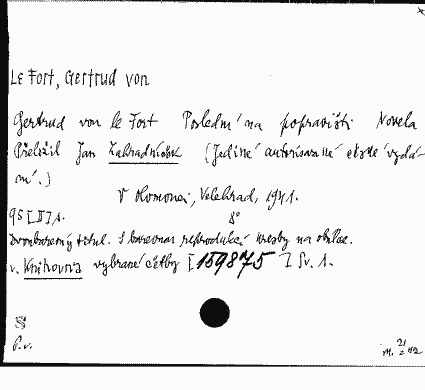 Le Fort, Gertrud von
Gertrud von le Fort Poslední na popravišti Novela
Přeložil Jan Zahradníček (Jediné autorisované české vydá-
ní.)
V Olomouci, Velehrad, 1941.
95 [II] s. 8°
Dvoubarevný titul. S barevnou reprodukcí kresby na obálce.
v. Knihovna vybrané četby [159875] Sv. 1.
P.v.